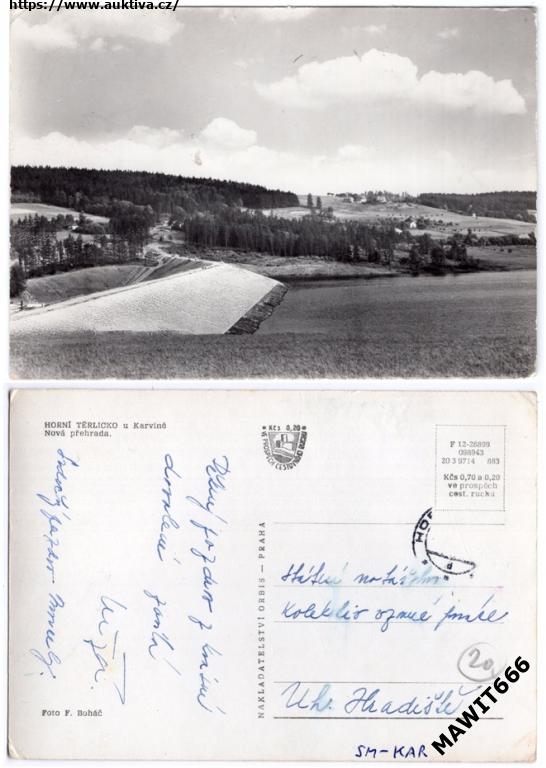 https://www.auktiva.cz/
HORNÍ TĚRLICKO u Karviné
Nová přehrada.
Kčs 0,20
VE PROSPĚCH CESTOVNÍHO RUCHU
F 12-26899
098943
20 3 9714 683
Kčs 0,70 a 0,20
ve prospěch
cest. ruchu
HOR
pozdrav z krásné
dovolené
Srdečný pozdrav
NAKLADATELSTVÍ ORBIS — PRAHA
Státní
Kolektiv
20
Uh. Hradiště
Foto F. Boháč
SM-KAR
MAWIT666